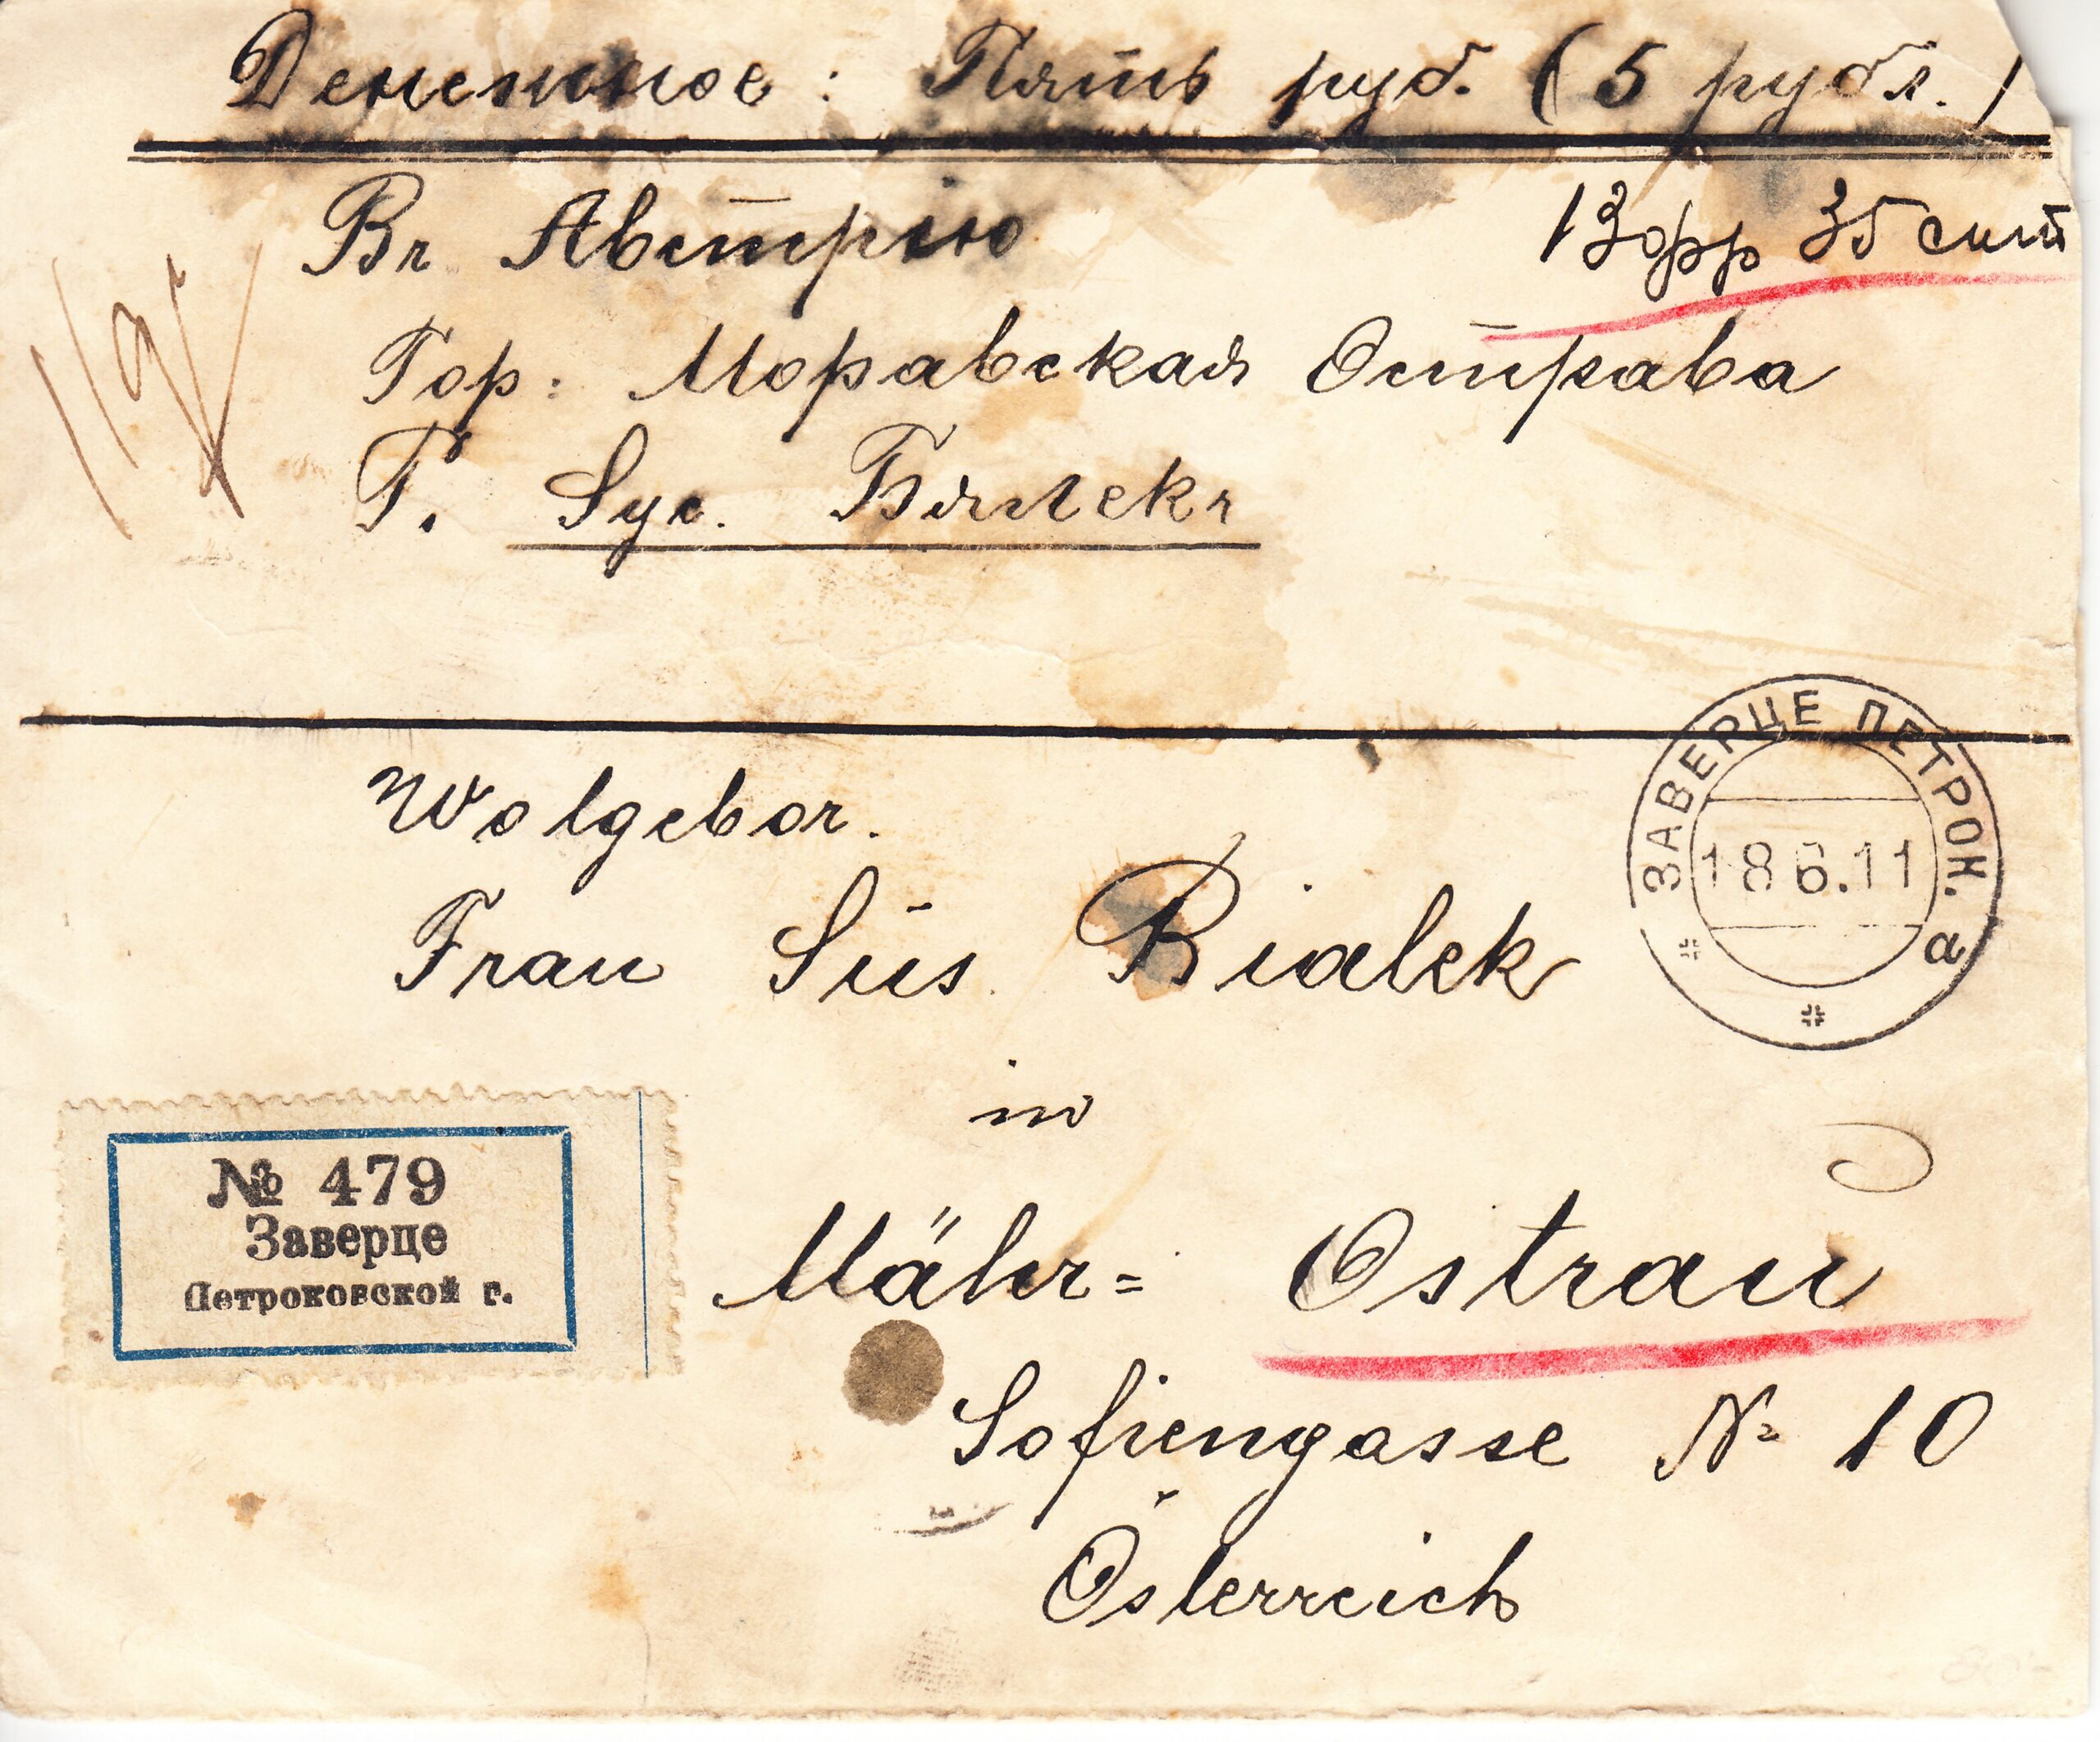 Денежное: Пять руб. (5 рубл.)
Въ Австрію
13 фр 35 сант
Гор: Моравская Острава
Г. Sус. Бялекъ
Wolgebor.
Frau Süs Bialek
in
Mähr= Ostrau
Sofiengasse № 10
Österreich
ЗАВЕРЦЕ ПЕТРОК.
18 6.11
а
№ 479
Заверце
Петроковской г.